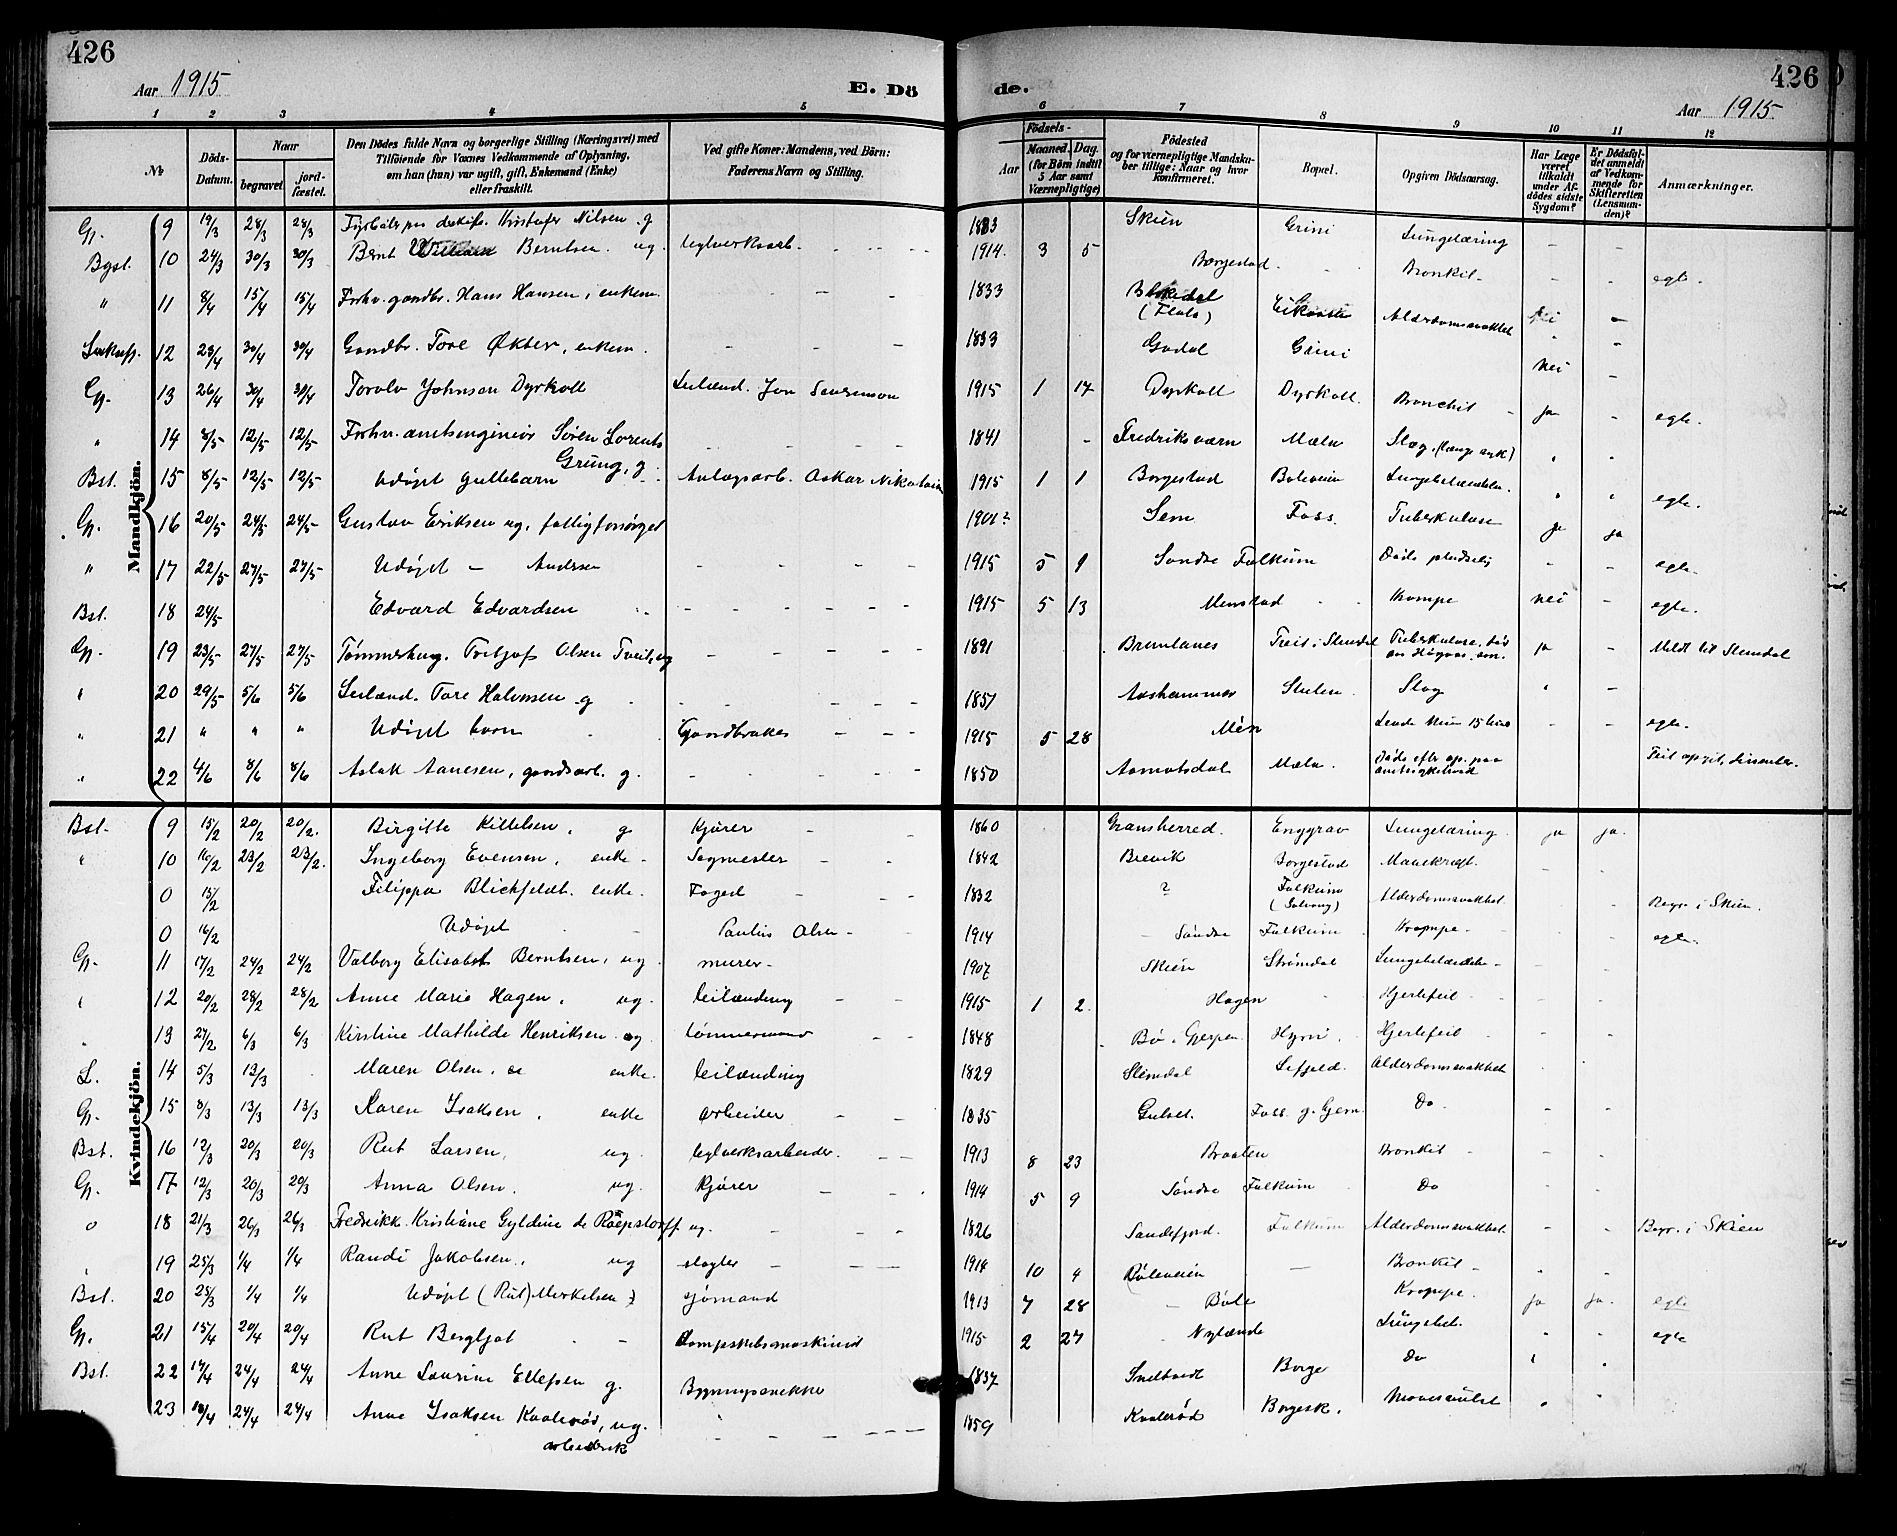 426
Aar 1915
E. Dö
de.
Aar 1915.
426
1 2 3 4 5 6 7 8 9 10 11 12
№
Döds-Datum.
Naar
begravet.
jord-fæstet.
Den Dödes fulde Navn og borgerlige Stilling (Næringsvei) med
Tilföiende for Voxnes Vedkommende af Oplysning,
om han (hun) var ugift, gift, Enkemand (Enke)
eller fraskilt.
Ved gifte Koner: Mandens, ved Börn:
Faderens Navn og Stilling.
Födsels-
Aar
Maaned. Dag.
(for Börn indtil
5 Aar samt
Værnepligtige)
Födested
og for værnepligtige Mandska-
ber tillige: Naar og hvor
konfirmeret.
Bopæl.
Opgiven Dödsaarsag.
Har Læge
været
tilkaldt
under Af-
dödes sidste
Sygdom?
Er Dödsfal-
det anmeldt
af Vedkom-
mende for
Skifteretten
(Lensman-
den)?
Anmærkninger.
Mandkjön.
Gp. 9 19/3 28/3 28/3 Kristofer Nilsen g 1833 Skien Grini Lungetæring – –
Bgst. 10 24/3 30/3 30/3 Bernt Berntsen. ug. teglverksarb. 1914. 3 5 Borgestad. Bronkit – – egte.
" 11 8/4 15/4 15/4 Forhv. gaardbr. Hans Hansen, enkem. 1833 Alderdomssvakhet nei –
12 23/4 30/4 30/4 Gaardbr. Tore Økter, enkem. 1833 Godal Grini nei –
Gp. 13 26/4 30/4 30/4 Torolv Johnsen Dyrkoll Leilænd. Jon Sørenson 1915 1 17 Dyrkoll Dyrkoll. Bronchit – ja – egte.
" 14 8/5 12/5 12/5 Forhv. amtsingeniør Søren Lorents
Grüng, g. 1841 Fredriksværn Mæla Slag, (længe syk)
Bst. 15 8/5 12/5 12/5 Udøpt guttebarn Anlægsarb. Oskar 1915 1 1 Borgestad Bøleveien egte.
Gp. 16 20/5 24/5 24/5 Gustav Eriksen ug, fattigforsørget 1901? Sem Foss. Tuberkulose ja ja
" 17 22/5 27/5 27/5 Udøpt – Andersen 1915 5 9 Søndre Falkum Døde pludselig – – egte.
Bst. 18 24/5 Edvard Edvardsen 1915 5 13 Menstad Krampe nei – egte.
Gp. 19 23/5 27/5 27/5 Tømmerhug. Fritjof Olsen Tveit, ug 1891 Brunlanes Tveit i Slemdal Tuberkulose ja – Meldt til Slemdal
" 20 29/5 5/6 5/6 Leilænd. Tore Halvorsen g 1851 Aashammer Stulen Slag " –
" 21 " " " Udøpt barn Gaardbruker 1915 5 28 Mén Levde kun 15 – – egte.
" 22 4/6 8/6 8/6 Aslak Aanesen, gaardsarb. g. 1850 Aamotsdal Mæla Døde efter op. paa
amtssykehuset
Kvindekjön.
Bst. 9 15/2 20/2 20/2. Birgitte Kittelsen, g Kjører 1860 Gransherred. Enggrav Lungetæring. ja ja.
" 10 16/2 23/2 23/2. Ingeborg Evensen, enke Sagmester 1842 Brevik Borgestad Mavekræft.
0 15/2 Filippa Blichfeldt. enke. Foged 1832 ? Falkum
(Solvang) Alderdomssvakhet. Begr. i Skien.
0 16/2 Udøpt Paulius Olsen 1914 Søndre Falkum Krampe egte.
Gp. 11 17/2 24/2 24/2 Valborg Elisabet Berntsen, ug murer 1907 Skien Strømdal Lungebetændelse
" 12 20/2 28/2 28/2 Anne Marie Hagen, ug. leilænding 1915 1 2. Hagen Hjertefeil
" 13 27/2 6/3 6/3 Kirstine Mathilde Henriksen ug tømmermand 1848 Bø i Gjerpen Hjertefeil
L. 14 5/3 13/3 Maren Olsen, enke. leilænding 1829 Slemdal Lifjeld. Alderdomssvakhet
Gp. 15 8/3 13/3 13/3 Karen Isaksen, enke arbeider 1835 Gulset. Foss g. Gjem. Do
Bst. 16 12/3 20/3 20/3 Rut Larsen, ug. teglverksarbeider. 1913 8 23 Braaten Bronkit
Gp. 17 12/3 20/3 20/3 Anna Olsen. ug. Kjører 1914 5 9 Søndre Falkum Do
0 18 21/3 26/3 26/3 Fredrikk. Kristiane Gyldine de Ræpstorff ug. 1826 Sandefjord. Falkum Alderdomssvakhet – – Begr. i Skien
" 19 25/3 1/4 1/4 Randi Jakobsen, ug slagter 1914 10 4 Bøleveien Bronkit
Bst. 20 25/3 1/4 1/4 Udøpt (Rut) Merkelsen sjømand 1913 7 28 Bøle Krampe. ja ja. egte
Gp. 21 15/4 20/4 20/4 Rut Bergljot dampskibsmaskinist 1915 2 27 Nylænde Lungebet. egte
Bst. 22 17/4 24/4 24/4 Anne Laurine Ellefsen g. 1837 Borge Do
23 18/4 24/4 24/4 Anne Isaksen Kaalerød, ug.
arbeiderk 1859 Kaalerød Borgesk.